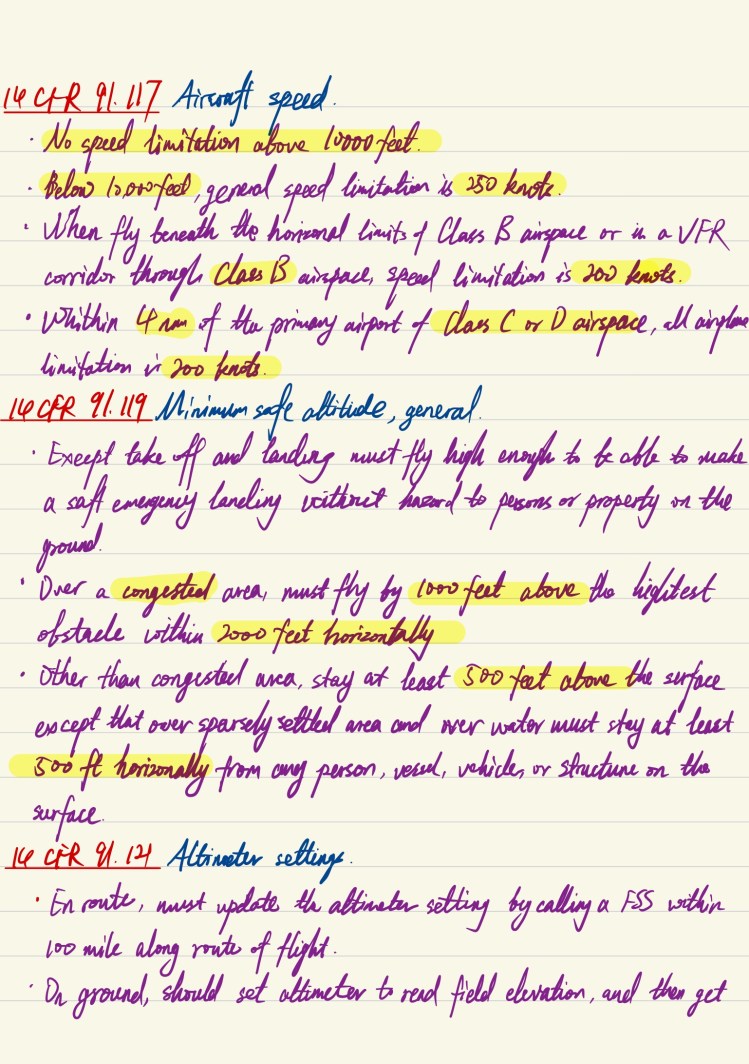 14 CFR 91.117 Aircraft speed.
· No speed limitation above 10000 feet.
· Below 10,000 feet, general speed limitation is 250 knots.
· When fly beneath the horizonal limits of Class B airspace or in a VFR
corridor through Class B airspace, speed limitation is 200 knots.
· Whithin 4 nm of the primary airport of Class C or D airspace, all airplane
limitation is 200 knots.
14 CFR 91.119 Minimum safe altitude, general.
· Except take off and landing must fly high enough to be able to make
a saft emergency landing without hazard to persons or property on the
ground.
· Over a congested area, must fly by 1000 feet above the hightest
obstacle within 2000 feet horizontally
· Other than congested area, stay at least 500 feet above the surface
except that over sparsely settled area and over water must stay at least
500 ft horizonally from any person, vessel, vehicle, or structure on the
surface.
14 CFR 91.121 Altimeter settings.
· En route, must update the altimeter setting by calling a FSS within
100 mile along route of flight.
· On ground, should set altimeter to read field elevation, and then get